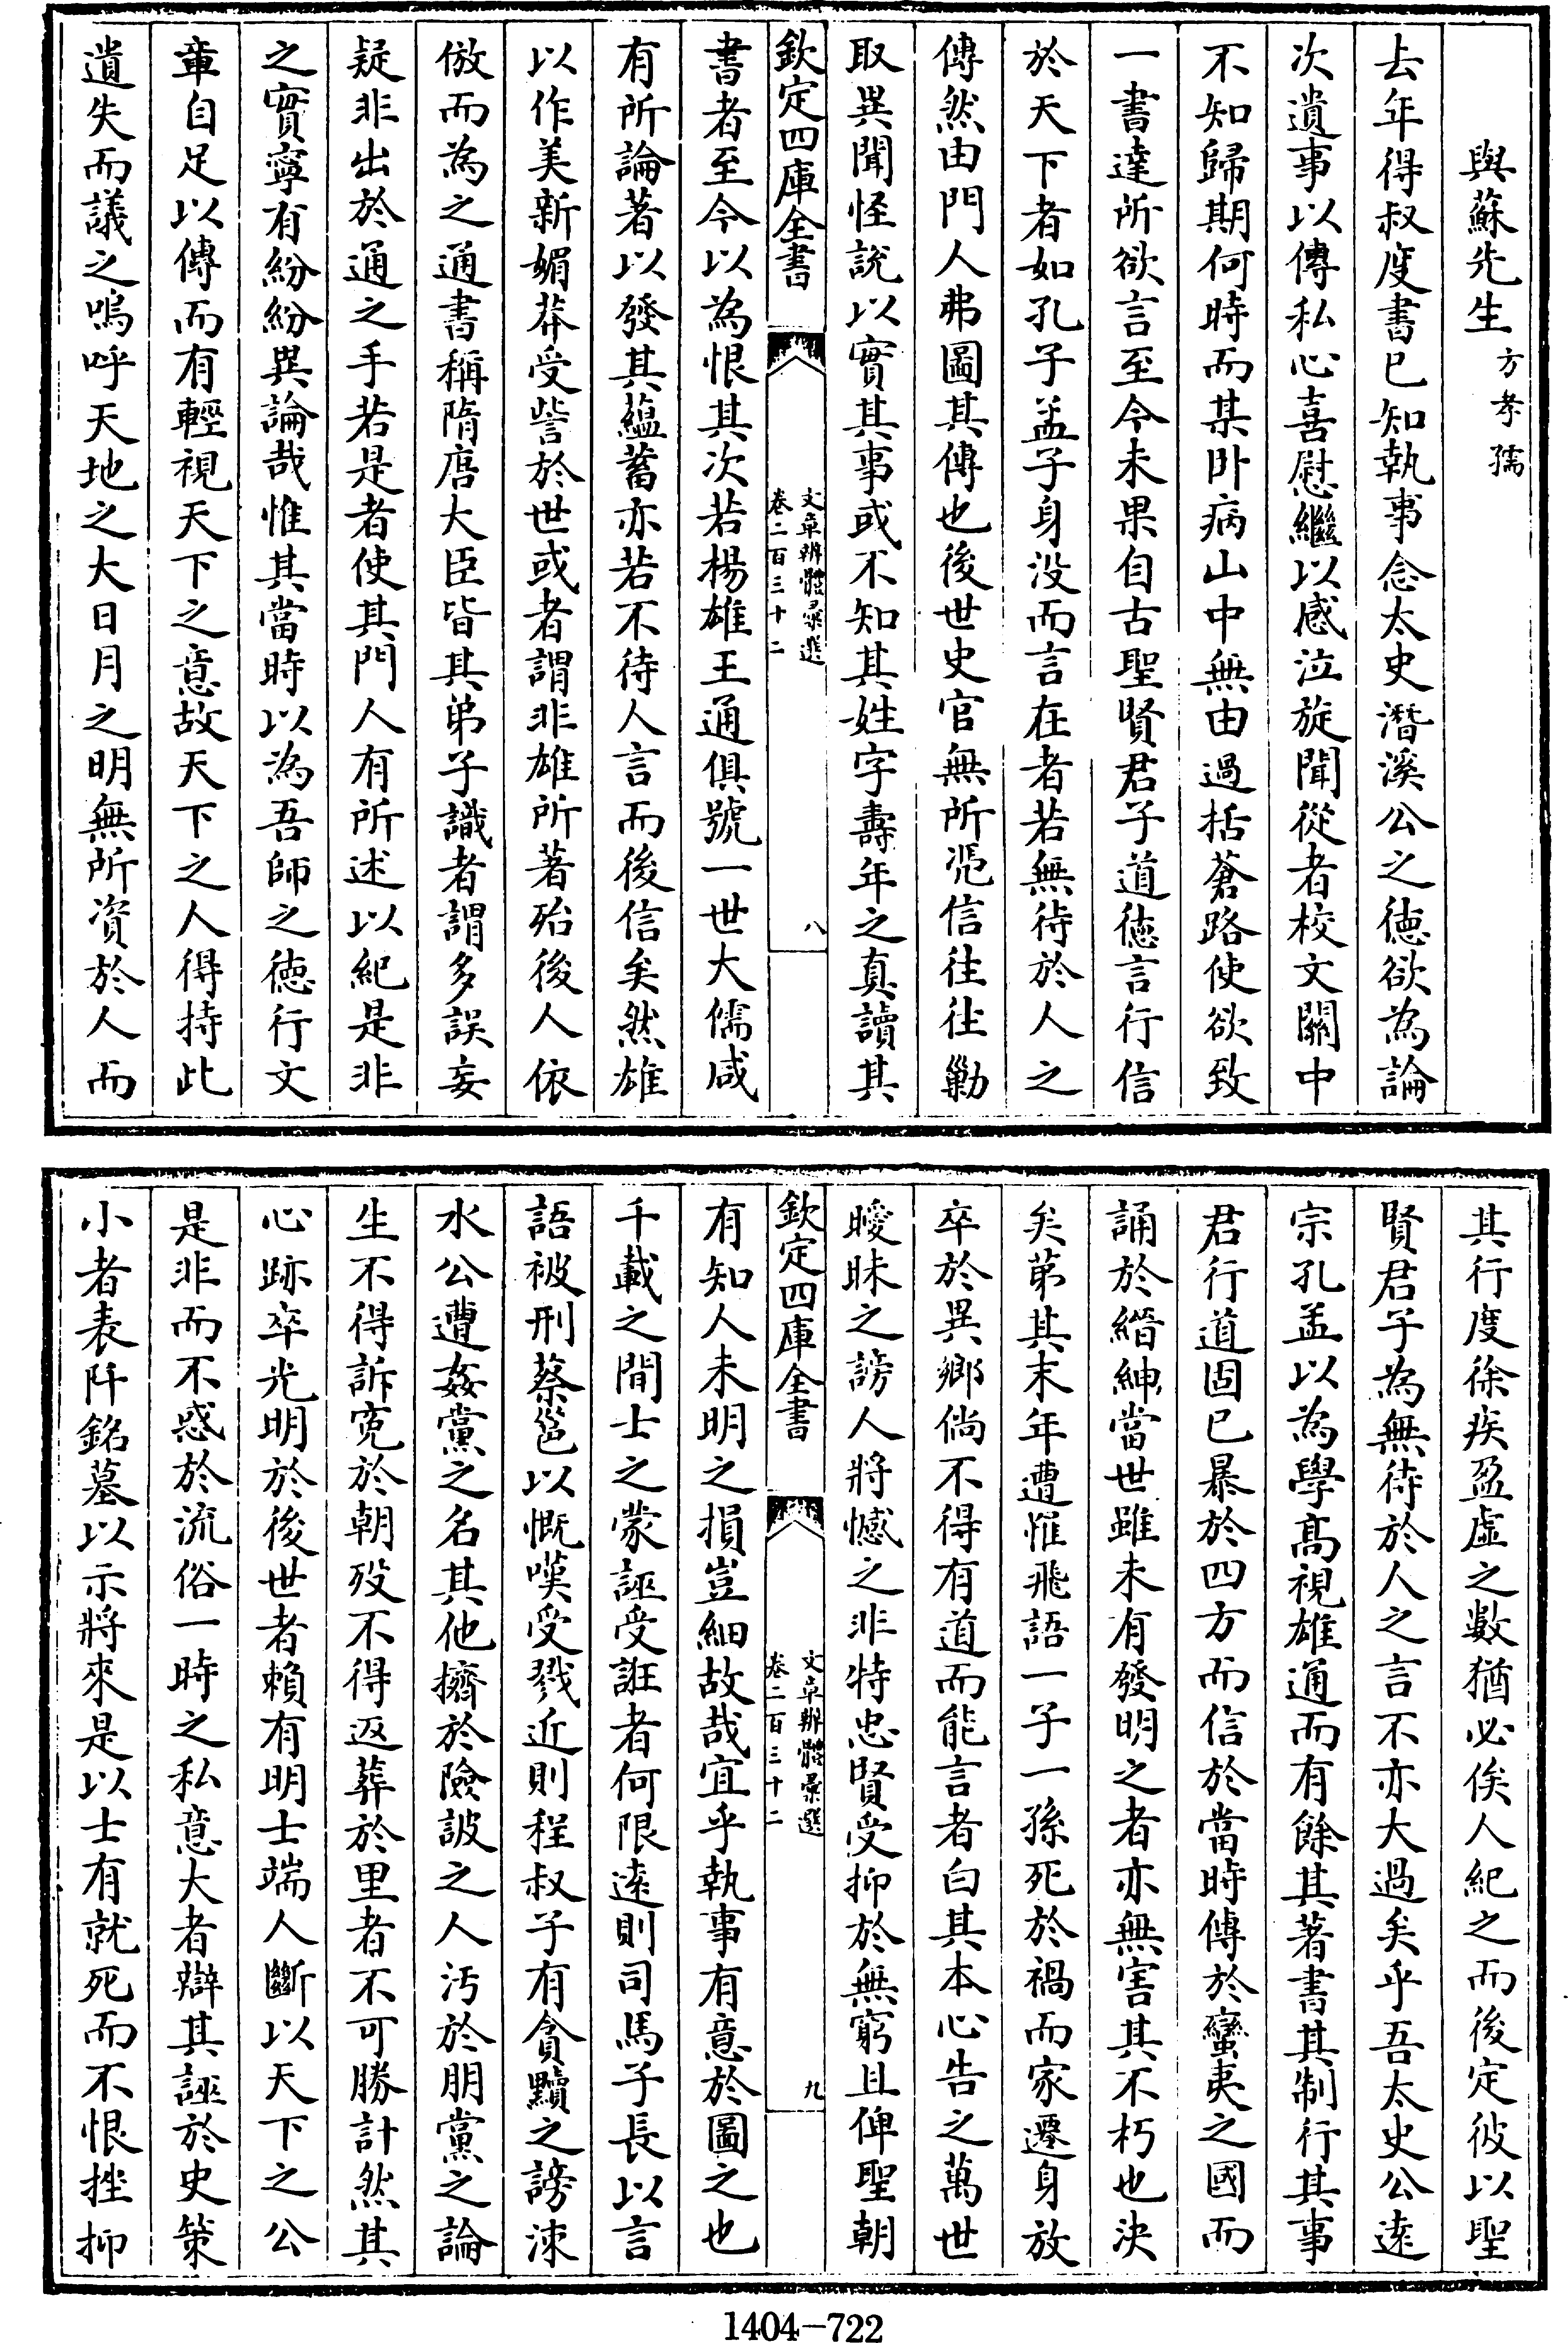 與蘇先生 方孝孺
去年得叔度書已知執事念太史潛溪公之德欲為論
次遺事以傳私心喜慰繼以感泣旋聞從者校文關中
不知歸期何時而某卧病山中無由過括蒼路使欲致
一書達所欲言至今未果自古聖賢君子道德言行信
於天下者如孔子孟子身没而言在者若無待於人之
傳然由門人弗圖其傳也後世史官無所慿信往往勦
取異聞怪說以實其事或不知其姓字壽年之真讀其
欽定四庫全書
文章辨體彚選
卷二百三十二
八
書者至今以為恨其次若楊雄王通俱號一世大儒咸
有所論著以發其蘊蓄亦若不待人言而後信矣然雄
以作美新媚莽受訾於世或者謂非雄所著殆後人依
倣而為之通書稱隋唐大臣皆其弟子識者謂多誤妄
疑非出於通之手若是者使其門人有所述以紀是非
之實寧有紛紛異論哉惟其當時以為吾師之德行文
章自足以傳而有輕視天下之意故天下之人得持此
遺失而議之嗚呼天地之大日月之明無所資於人而
其行度徐疾盈虚之數猶必俟人紀之而後定彼以聖
賢君子為無待於人之言不亦大過矣乎吾太史公逺
宗孔孟以為學髙視雄通而有餘其著書其制行其事
君行道固已暴於四方而信於當時傳於蠻夷之國而
誦於縉紳當世雖未有發明之者亦無害其不朽也決
矣苐其末年遭惟飛語一子一孫死於禍而家遷身放
卒於異鄉倘不得有道而能言者白其本心告之萬世
曖昧之謗人將憾之非特忠賢受抑於無窮且俾聖朝
欽定四庫全書
文章辨體彚選
卷二百三十二
九
有知人未明之損豈細故哉宜乎執事有意於圖之也
千載之間士之蒙誣受誑者何限逺則司馬子長以言
語被刑蔡邕以慨嘆受戮近則程叔子有貪黷之謗涑
水公遭姦黨之名其他擠於險詖之人汚於朋黨之論
生不得訴寃於朝歿不得返葬於里者不可勝計然其
心跡卒光明於後世者賴有明士端人斷以天下之公
是非而不惑於流俗一時之私意大者辯其誣於史策
小者表阡銘墓以示將來是以士有就死而不恨挫抑
1404-722